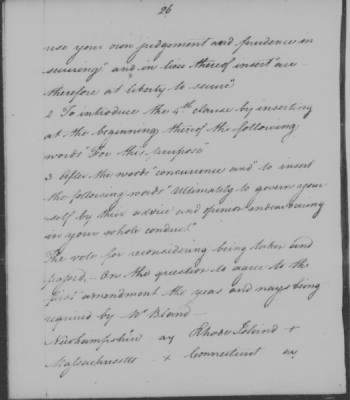 26
use your own judgement and prudence in
securing" and in lieu thereof insert "are
therefore at liberty to secure"
2 To introduce the 4th clause by inserting
at the beginning thereof the following
words "For this purpose"
3 After the words "concurrence and" to insert
the following words "Ultimately to govern your
self by their advice and opinion endeavouring
in your whole conduct."
The vote for reconsidering being taken and
passed,– On the question to agree to the
first amendment the yeas and nays being
required by Mr Bland
Newhampshire ay Rhode Island +
Massachusetts + Connecticut ay